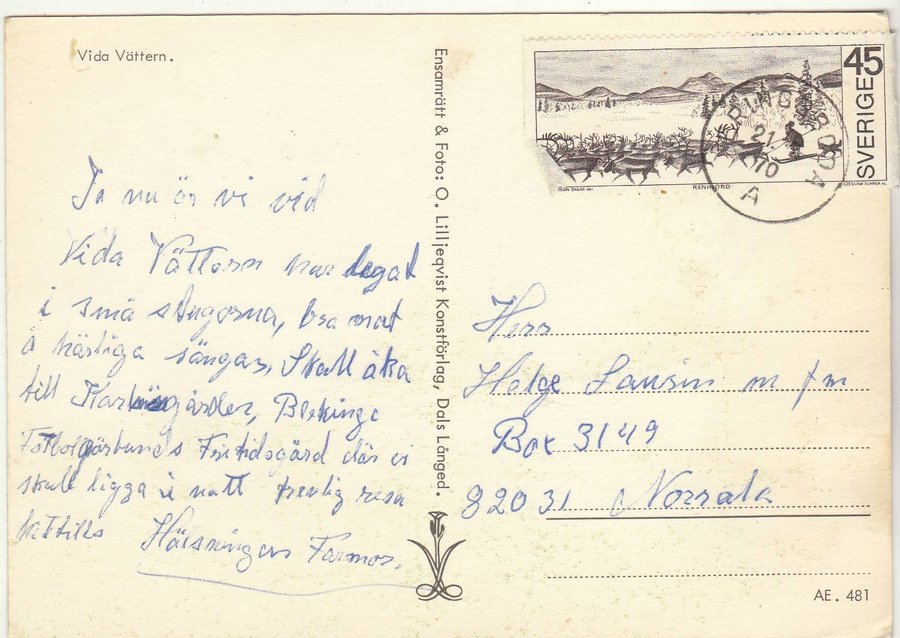 Vida Vättern.
Ja nu är vi vid
Vida Vättern har legat
i små stugorna, bra mat
å härliga sängar, Skall åka
till gården, Blekinge
Fotbollsförbunds Fritidsgård där vi
skall ligga i natt trevlig resa
hittills Hälsningar Farmor.
Ensamrätt & Foto: O. Lilljeqvist Konstförlag, Dals Långed.
45
SVERIGE
RENHJORD
CZESLAW SLANIA SC.
21
70
A
Herr
Helge m fm
Box 3149
82031 Norrala
AE. 481